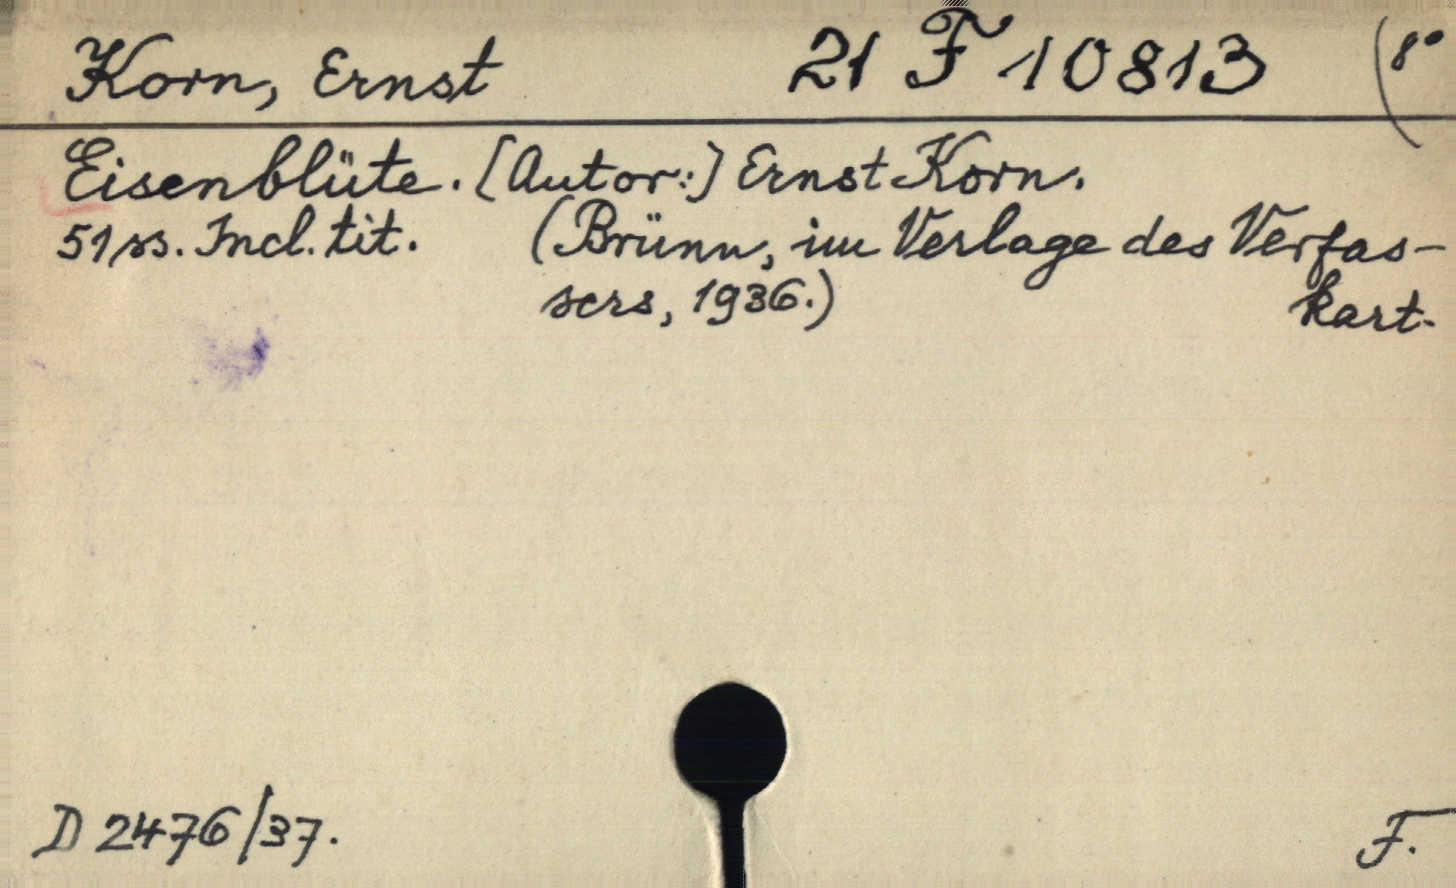 Korn, Ernst 21 F 10813 (8°
Eisenblüte. [Autor:] Ernst Korn.
51 ss. Incl. tit. (Brünn, im Verlage des Verfas-
sers, 1936.) kart.
D 2476/37. F.